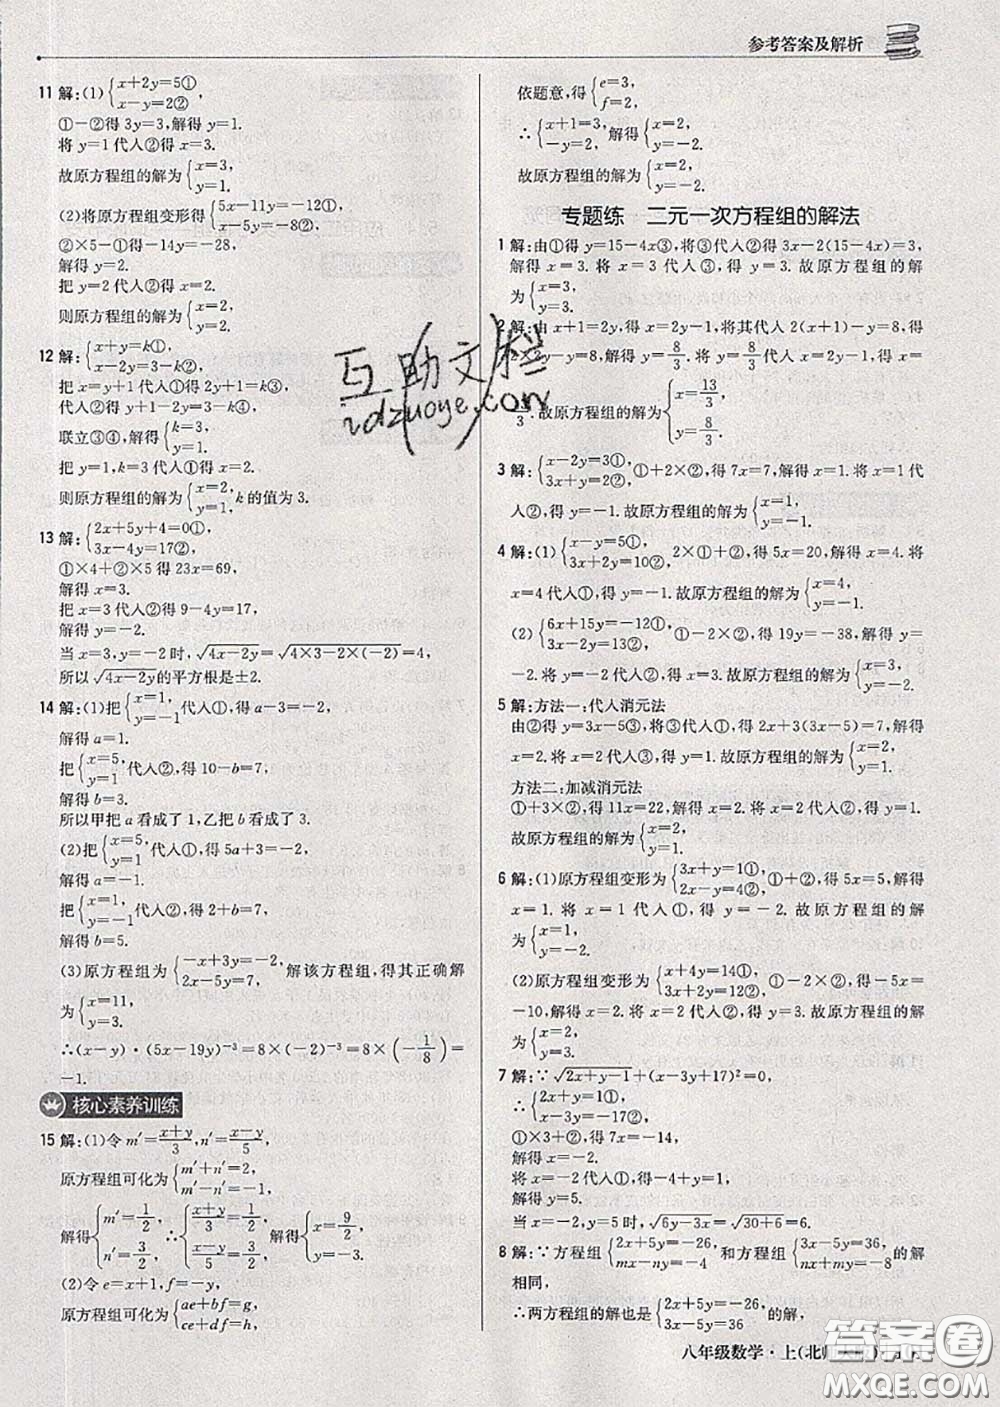 参考答案及解析
11 解:(1){x+2y=5①,
x-y=2②,
①-②得 3y=3,解得 y=1.
将 y=1 代人②得 x=3.
故原方程组的解为{x=3,
y=1.
(2)将原方程组变形得{5x-11y=-12①,
x-5y=-8②,
②×5-①得-14y=-28,
解得 y=2.
把 y=2 代人②得 x=2.
则原方程组的解为{x=2,
y=2.
12 解:{x+y=k①,
x-2y=3-k②,
把 x=y+1 代人①得 2y+1=k③,
代人②得 y+1-2y=3-k④,
联立③④,解得{k=3,
y=1.
把 y=1,k=3 代人①得 x=2.
则原方程组的解为{x=2,
y=1,k 的值为 3.
13 解:{2x+5y+4=0①,
3x-4y=17②,
①×4+②×5 得 23x=69,
解得 x=3.
把 x=3 代人②得 9-4y=17,
解得 y=-2.
当 x=3,y=-2 时,√(4x-2y)=√(4×3-2×(-2))=4,
所以√(4x-2y)的平方根是±2.
14 解:(1)把{x=1,
y=-1代人①,得 a-3=-2,
解得 a=1.
把{x=5,
y=1代人②,得 10-b=7,
解得 b=3.
所以甲把 a 看成了 1,乙把 b 看成了 3.
(2)把{x=5,
y=1代人①,得 5a+3=-2,
解得 a=-1.
把{x=1,
y=-1代人②,得 2+b=7,
解得 b=5.
(3)原方程组为{-x+3y=-2,
2x-5y=7,解该方程组,得其正确解
为{x=11,
y=3.
∴(x-y)·(5x-19y)⁻³=8×(-2)⁻³=8×(-1/8)=
-1.
核心素养训练
15 解:(1)令 m′=(x+y)/3,n′=(x-y)/5,
原方程组可化为{m′+n′=2,
m′-n′=-1,
解得{m′=1/2,
n′=3/2,∴{(x+y)/3=1/2,
(x-y)/5=3/2,解得{x=9/2,
y=-3.
(2)令 e=x+1,f=-y,
原方程组可化为{ae+bf=g,
ce+df=h,
依题意,得{e=3,
f=2,
∴{x+1=3,
-y=2,解得{x=2,
y=-2.
故原方程组的解为{x=2,
y=-2.
专题练 二元一次方程组的解法
1 解:由①得 y=15-4x③,将③代人②得 3x-2(15-4x)=3,
解得 x=3. 将 x=3 代人③,得 y=3. 故原方程组的解
为{x=3,
y=3.
2 解:由 x+1=2y,得 x=2y-1,将其代人 2(x+1)-y=8,得
2×2y-y=8,解得 y=8/3. 将 y=8/3代人 x=2y-1,得 x=
3.故原方程组的解为{x=13/3,
y=8/3.
3 解:{x-2y=3①,
3x+2y=-2②,①+2×②,得 7x=7,解得 x=1. 将 x=1 代
人②,得 y=-1. 故原方程组的解为{x=1,
y=-1.
4 解:(1){x-y=5①,
3x+2y=10②,2×①+②,得 5x=20,解得 x=4. 将
x=4 代人①,得 y=-1. 故原方程组的解为{x=4,
y=-1.
(2){6x+15y=-12①,
6x-2y=13②,①-2×②,得 19y=-38,解得 y=
-2. 将 y=-2 代人②,得 x=3. 故原方程组的解为{x=3,
y=-2.
5 解:方法一:代人消元法
由②得 y=3x-5③,将③代人①,得 2x+3(3x-5)=7,解得
x=2. 将 x=2 代人③,得 y=1. 故原方程组的解为{x=2,
y=1.
方法二:加减消元法
①+3×②,得 11x=22,解得 x=2. 将 x=2 代人②,得 y=1.
故原方程组的解为{x=2,
y=1.
6 解:(1)原方程组变形为{3x+y=1①,
2x-y=4②,①+②,得 5x=5,解得
x=1. 将 x=1 代人①,得 y=-2. 故原方程组的解
为{x=1,
y=-2.
(2)原方程组变形为{x+4y=14①,
3x+2y=12②,①-2×②,得-5x=
-10,解得 x=2. 将 x=2 代人②,得 y=3. 故原方程组的解
为{x=2,
y=3.
7 解:∵√(2x+y-1)+(x-3y+17)²=0,
∴{2x+y=1①,
x-3y=-17②.
①×3+②,得 7x=-14,
解得 x=-2.
将 x=-2 代人①,得-4+y=1,
解得 y=5.
当 x=-2,y=5 时,√(6y-3x)=√(30+6)=6.
8 解:∵方程组{2x+5y=-26,
mx-ny=-4和方程组{3x-5y=36,
nx+my=-8的解
相同,
∴两方程组的解也是{2x+5y=-26,
3x-5y=36的解,
八年级数学·上(北
互助文档
idzuoye.com
答案圈
MXQE.COM